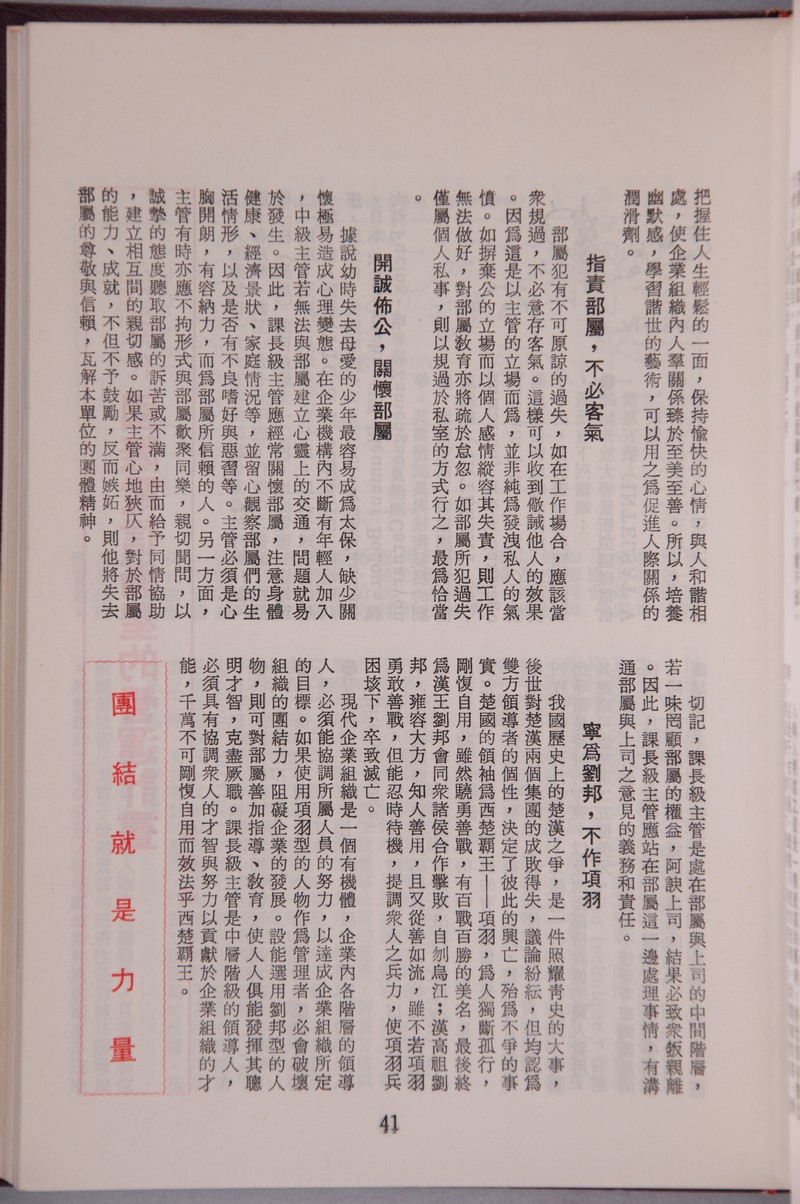 把握住人生輕鬆的一面，保持愉快的心情，與人和諧相
處，使企業組織內人羣關係臻於至美至善。所以，培養
幽默感，學習諧世的藝術，可以用之爲促進人際關係的
潤滑劑。
指責部屬，不必客氣
部屬犯有不可原諒的過失，如在工作場合，應該當
衆規過，不必意存客氣。這樣可以收到儆誡他人的效果
。因爲這是以主管的立場而爲，並非純爲發洩私人的氣
憤。如摒棄公的立場而以個人感情縱容其失責，則工作
無法做好，對部屬教育亦將疏於怠忽。如部屬所犯過失
僅屬個人私事，則以規過於私室的方式行之，最爲恰當
。
開誠佈公，關懷部屬
據說幼時失去母愛的少年最容易成爲太保，缺少關
懷極易造成心理變態。在企業機構內不斷有年輕人加入
，中級主管若無法與部屬建立心靈上的交通，問題就易
於發生。因此，課長級主管應經常關懷部屬，注意身體
健康、經濟景狀、家庭情況等，並留心觀察部屬們的生
活情形，以及是否有不良嗜好與惡習等。主管必須是心
胸開朗，有容納力，而爲部屬所信賴的人。另一方面，
主管有時亦應不拘形式與部屬歡聚同樂，親切聞問，以
誠摯的態度聽取部屬的訴苦或不滿，由而給予同情協助
，建立相互間的親切感。如果主管心地狹仄，對於部屬
的能力、成就，不但不予鼓勵，反而嫉妬，則他將失去
部屬的尊敬與信賴，瓦解本單位的團體精神。
切記，課長級主管是處在部屬與上司的中間階層，
若一味罔顧部屬的權益，阿諛上司，結果必致衆叛親離
。因此，課長級主管應站在部屬這一邊處理事情，有溝
通部屬與上司之意見的義務和責任。
寧爲劉邦，不作項羽
我國歷史上的楚漢之爭，是一件照耀靑史的大事，
後世對楚漢兩個集團的成敗得失，議論紛紜，但均認爲
雙方領導者的個性，決定了彼此的興亡，殆爲不爭的事
實。楚國的領袖爲西楚霸王——項羽，爲人獨斷孤行，
剛愎自用，雖然驍勇善戰，有百戰百勝的美名，最後終
爲漢王劉邦會同衆諸侯合作擊敗，自刎烏江；漢高祖劉
邦，雍容大方，知人善用，且又從善如流，雖不若項羽
勇敢善戰，但能忍時待機，提調衆人之兵力，使項羽兵
困垓下，卒致滅亡。
現代企業組織是一個有機體，企業內各階層的領導
人，必須能協調所屬人員的努力，以達成企業組織所定
的目標。如果使用項羽型的人物作爲管理者，必會破壞
組織的團結力，阻礙企業的發展。設能選用劉邦型的人
物，則可對部屬善加指導、教育，使人人俱能發揮其聰
明才智，克盡厥職。課長級主管是中層階級的領導人，
必須具有協調衆人的才智與努力以貢獻於企業組織的才
能，千萬不可剛愎自用而效法乎西楚霸王。
團結就是力量
41